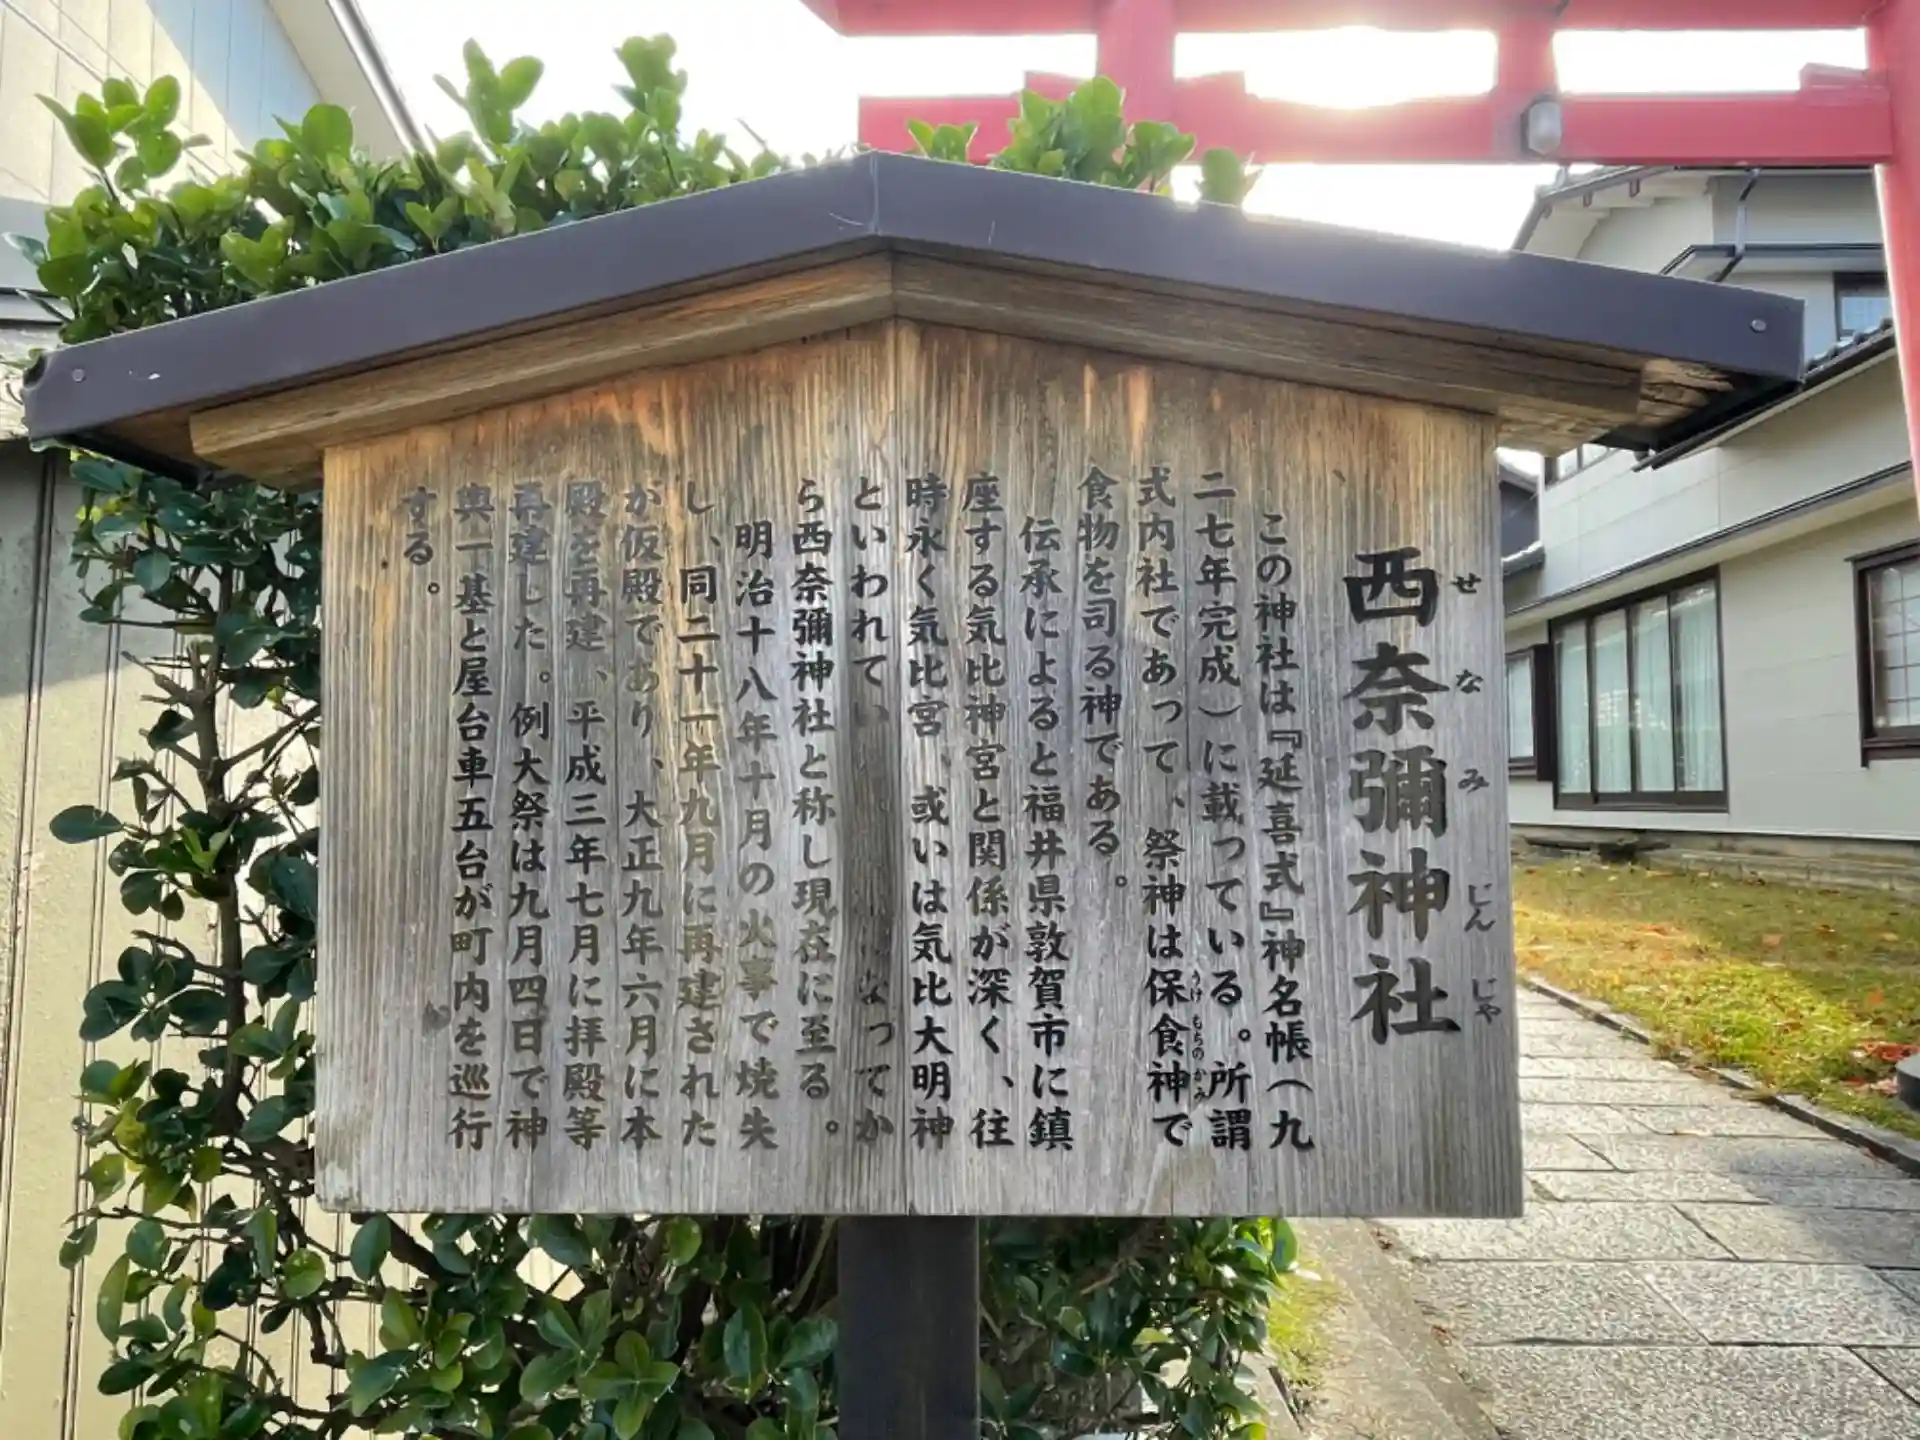 西奈彌神社
せなみじんじゃ
この神社は『延喜式』神名帳(九
二七年完成)に載っている。所謂
式内社であって、祭神は保食神で
うけもちのかみ
食物を司る神である。
伝承によると福井県敦賀市に鎮
座する気比神宮と関係が深く、往
時永く気比宮、或いは気比大明神
といわれてい なってか
ら西奈彌神社と称し現在に至る。
明治十八年十月の火事で焼失
し、同二十一年九月に再建された
が仮殿であり、大正九年六月に本
殿を再建、平成三年七月に拝殿等
再建した。例大祭は九月四日で神
輿一基と屋台車五台が町内を巡行
する。